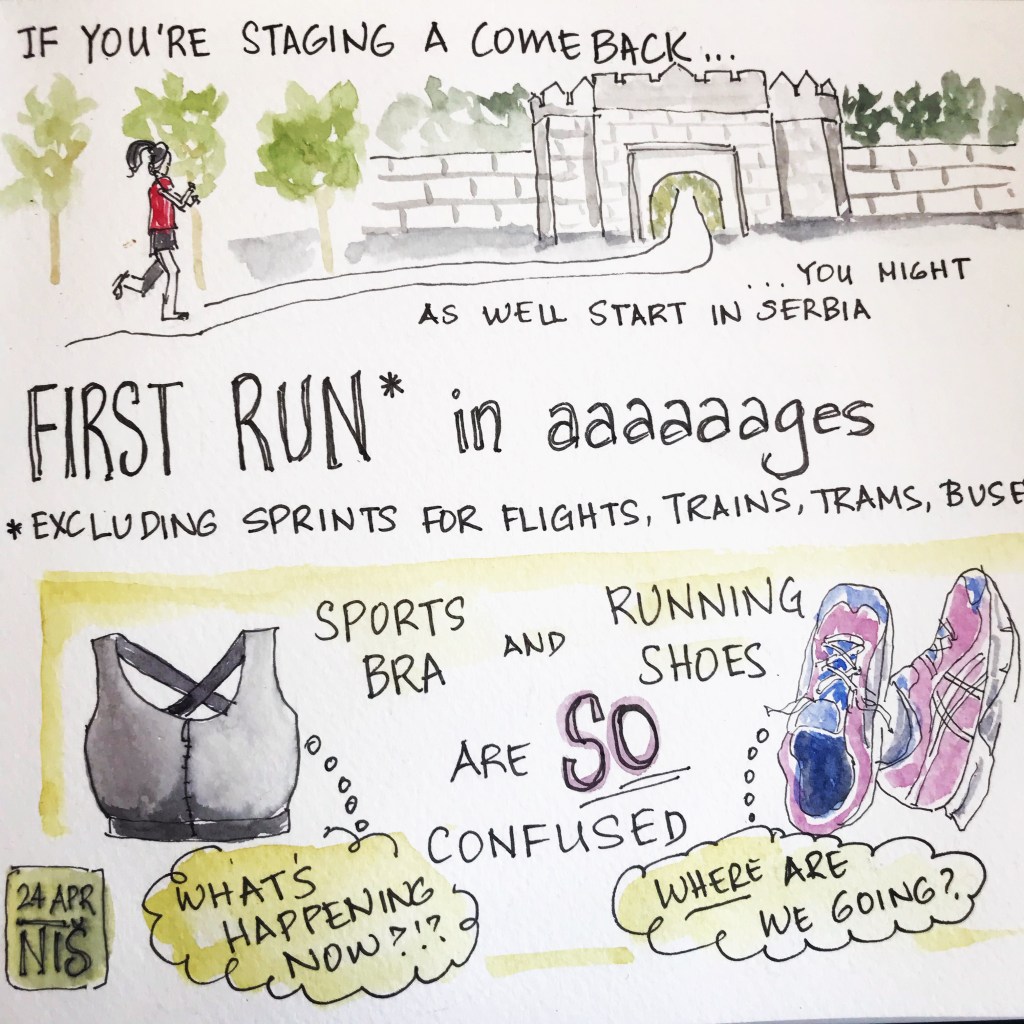 IF YOU'RE STAGING A COMEBACK...
...YOU MIGHT
AS WELL START IN SERBIA
FIRST RUN* in aaaaaaages
*EXCLUDING SPRINTS FOR FLIGHTS, TRAINS, TRAMS, BUSE
SPORTS BRA AND RUNNING SHOES
ARE SO
CONFUSED
WHAT'S
HAPPENING
NOW?!?
WHERE ARE
WE GOING?
24 APR
NIŠ